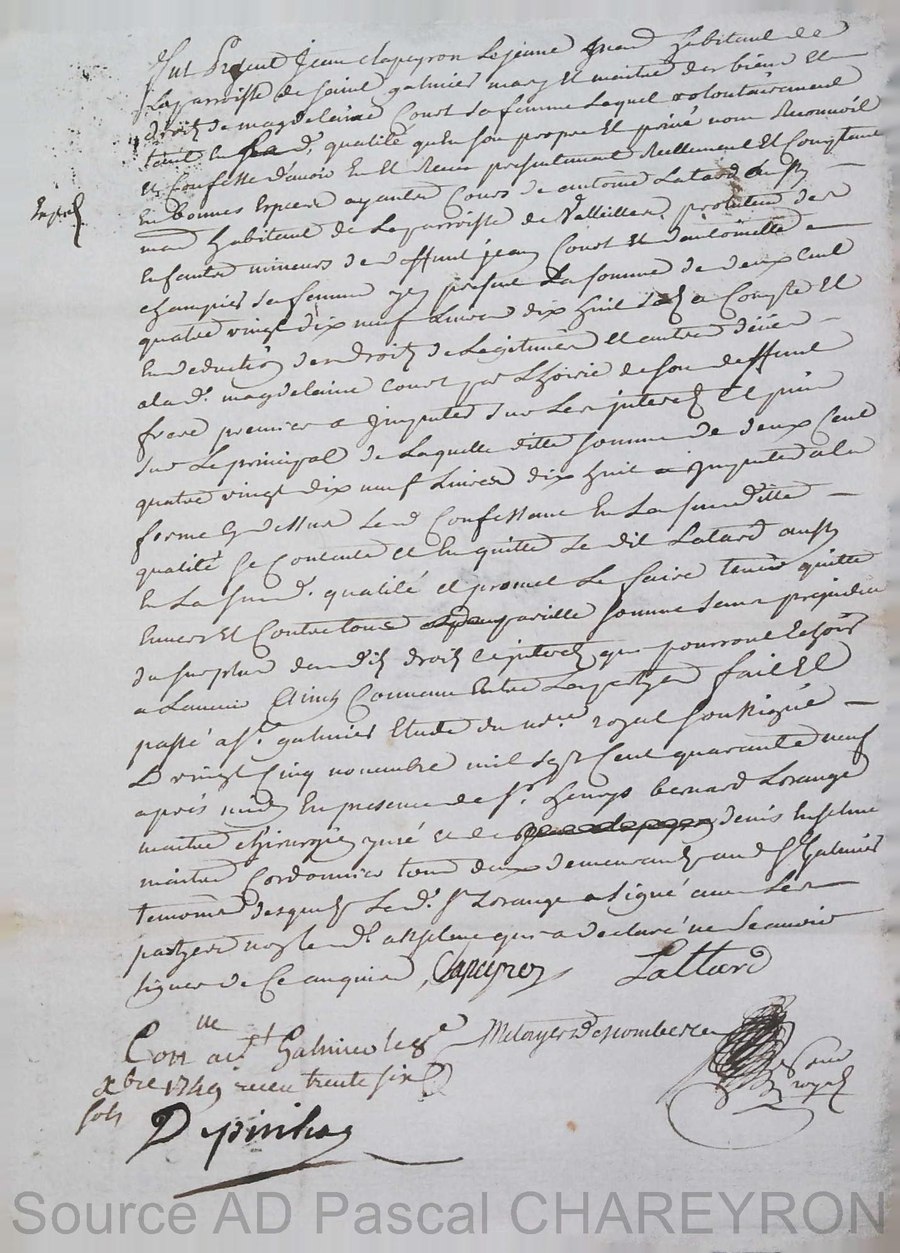 fut Present Jean Clapeyron Lejeune Mard habitant de
La parroisse de Saint galmier mary et maitre des biens et
droits de magdelaine Court Sa femme Lequel volontairement
tant en Sa d. qualité qu'en Son propre et privé nom Reconnoit
et Confesse d'avoir eu et Receu presentement Reellement et Comptant
En bonnes Especes ayantes Cours de antoine Latard aussy
mard habitant de La parroisse de Valleille protuteur des
enfants mineurs de deffunt jean Court et d'antoinette
Sa femme jcy present La Somme de deux Cent
quatre vingt dix neuf Livres dix huit Sols a Compte et
En deduction des droits de Legitimes et autres
a la d. magdelaine Court par L'hoirie de Son deffunt
frere premier a jmputer Sur Les jnterets et puis
Sur Le principal de Laquelle ditte Somme de deux Cent
quatre vingt dix neuf Livres dix huit a jmputer a la
forme Cy dessus Le d. Confessant En La Susditte
qualité Se Contente et En quitte Le dit Latard aussy
En La Susd. qualité et promet Le faire tenir quitte
Envers et Contre tous pareille Somme Sans prejudice
du Surplus desdits droits et jnterets qui pourront Echoir
a Lavenir Ainsy Convenu Entre Les partyes fait et
passé a St. galmier Etude du nore. royal Soussigné
Le vingt Cinq novembre mil Sept Cent quarante neuf
après midy En presence de Sr. henrys bernard Lorange
maitre Chirurgien juré et de denis
maitre Cordonnier tous deux demeurants aud St Galmier
temoins desquels Le d. Sr Lorange a Signé avec Les
partyes non Le d. qui a declaré ne Scavoir
Signer de Ce enquis Clapeyron Lattard
Conlle a St Galmier le 8e
xbre 1749 receu trente Six
Sols
royal
Source AD Pascal CHAREYRON